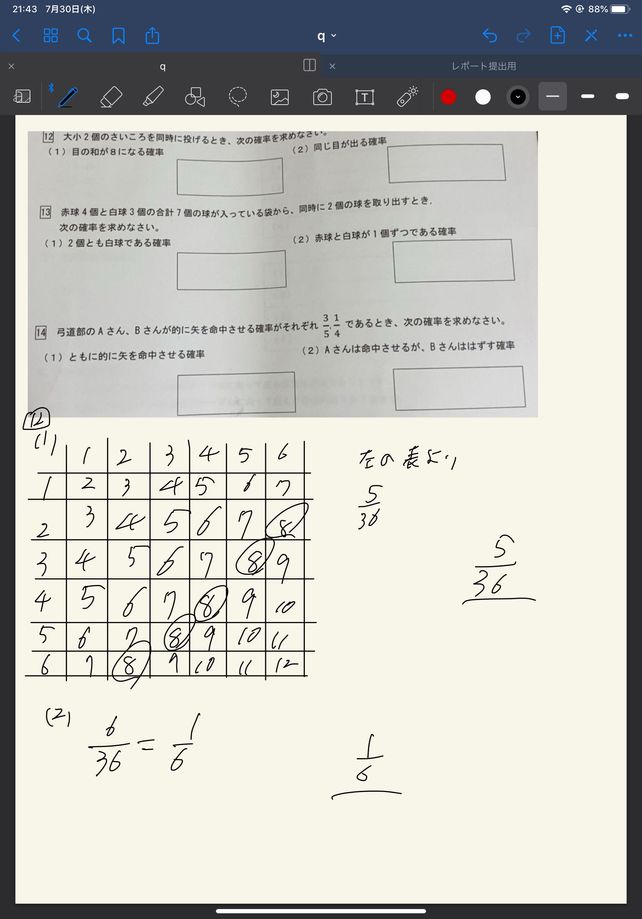 21:43 7月30日(木) 88%
q
q
レポート提出用
12 大小2個のさいころを同時に投げるとき、次の確率を求めなさい。
(1) 目の和が8になる確率
(2) 同じ目が出る確率
13 赤球4個と白球3個の合計7個の球が入っている袋から、同時に2個の球を取り出すとき、
次の確率を求めなさい。
(1) 2個とも白球である確率
(2) 赤球と白球が1個ずつである確率
14 弓道部のAさん、Bさんが的に矢を命中させる確率がそれぞれ 3/5, 1/4 であるとき、次の確率を求めなさい。
(1) ともに的に矢を命中させる確率
(2) Aさんは命中させるが、Bさんははずす確率
12
(1)
1 2 3 4 5 6
1 2 3 4 5 6 7
2 3 4 5 6 7 8
3 4 5 6 7 8 9
4 5 6 7 8 9 10
5 6 7 8 9 10 11
6 7 8 9 10 11 12
左の表より
5/36
5/36
(2) 6/36 = 1/6
1/6